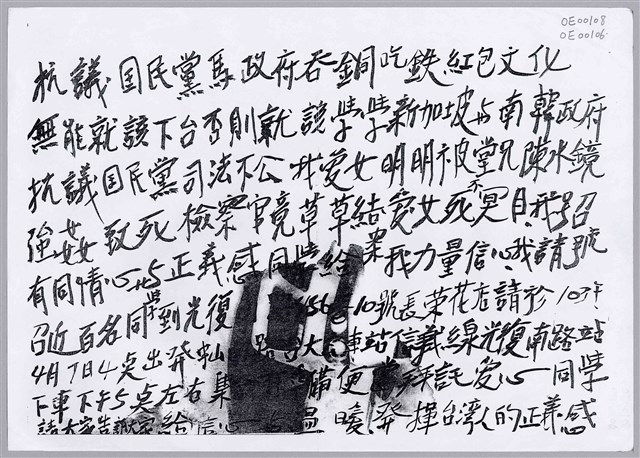 OE00108
OE00106
抗議国民黨馬政府吞銅吃鉄紅包文化
無能就該下台否則就該学学新加坡与南韓政府
抗議国民黨司法不公我愛女明明被堂兄陳水鏡
強姦致死檢察官竟草草結案愛女死不冥目我路
有同情心与正義感同学給我力量信心我請號
召近百名同学到光復 156 10號長荣花店請於103年
4月7日4点出発 大 車站信義線光復南路站
下車下午5点左右集 備便當拜託愛心同学
請大家告訴大家給信心 温暖発揮台湾人的正義感